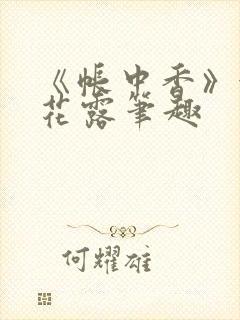 《帐中香》
花露笔趣
何耀雄